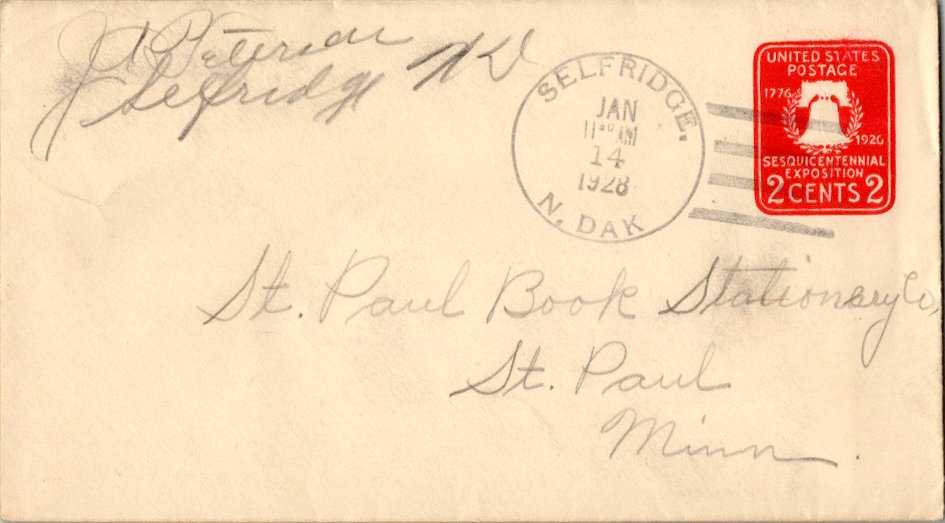 J Peterson
Selfridge ND
SELFRIDGE,
JAN
11 AM
14
1928
N. DAK
UNITED STATES
POSTAGE
1776
1926
SESQUICENTENNIAL
EXPOSITION
2 CENTS 2
St. Paul Book Stationery Co,
St. Paul
Minn.